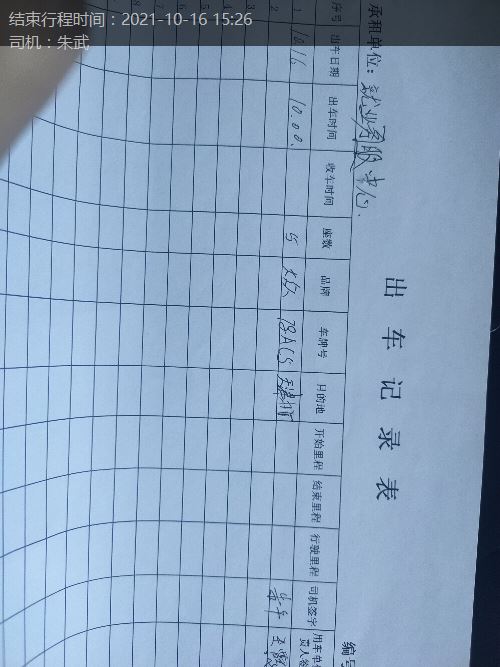 结束行程时间：2021-10-16 15:26
司机：朱武
出车记录表
承租单位：就业服务中心
编号
序号 出车日期 出车时间 收车时间 座数 品牌 车牌号 目的地 开始里程 结束里程 行驶里程 司机签字 用车单
1 10.16 10.00. 5 大众
2
3
4
5
6
7
8